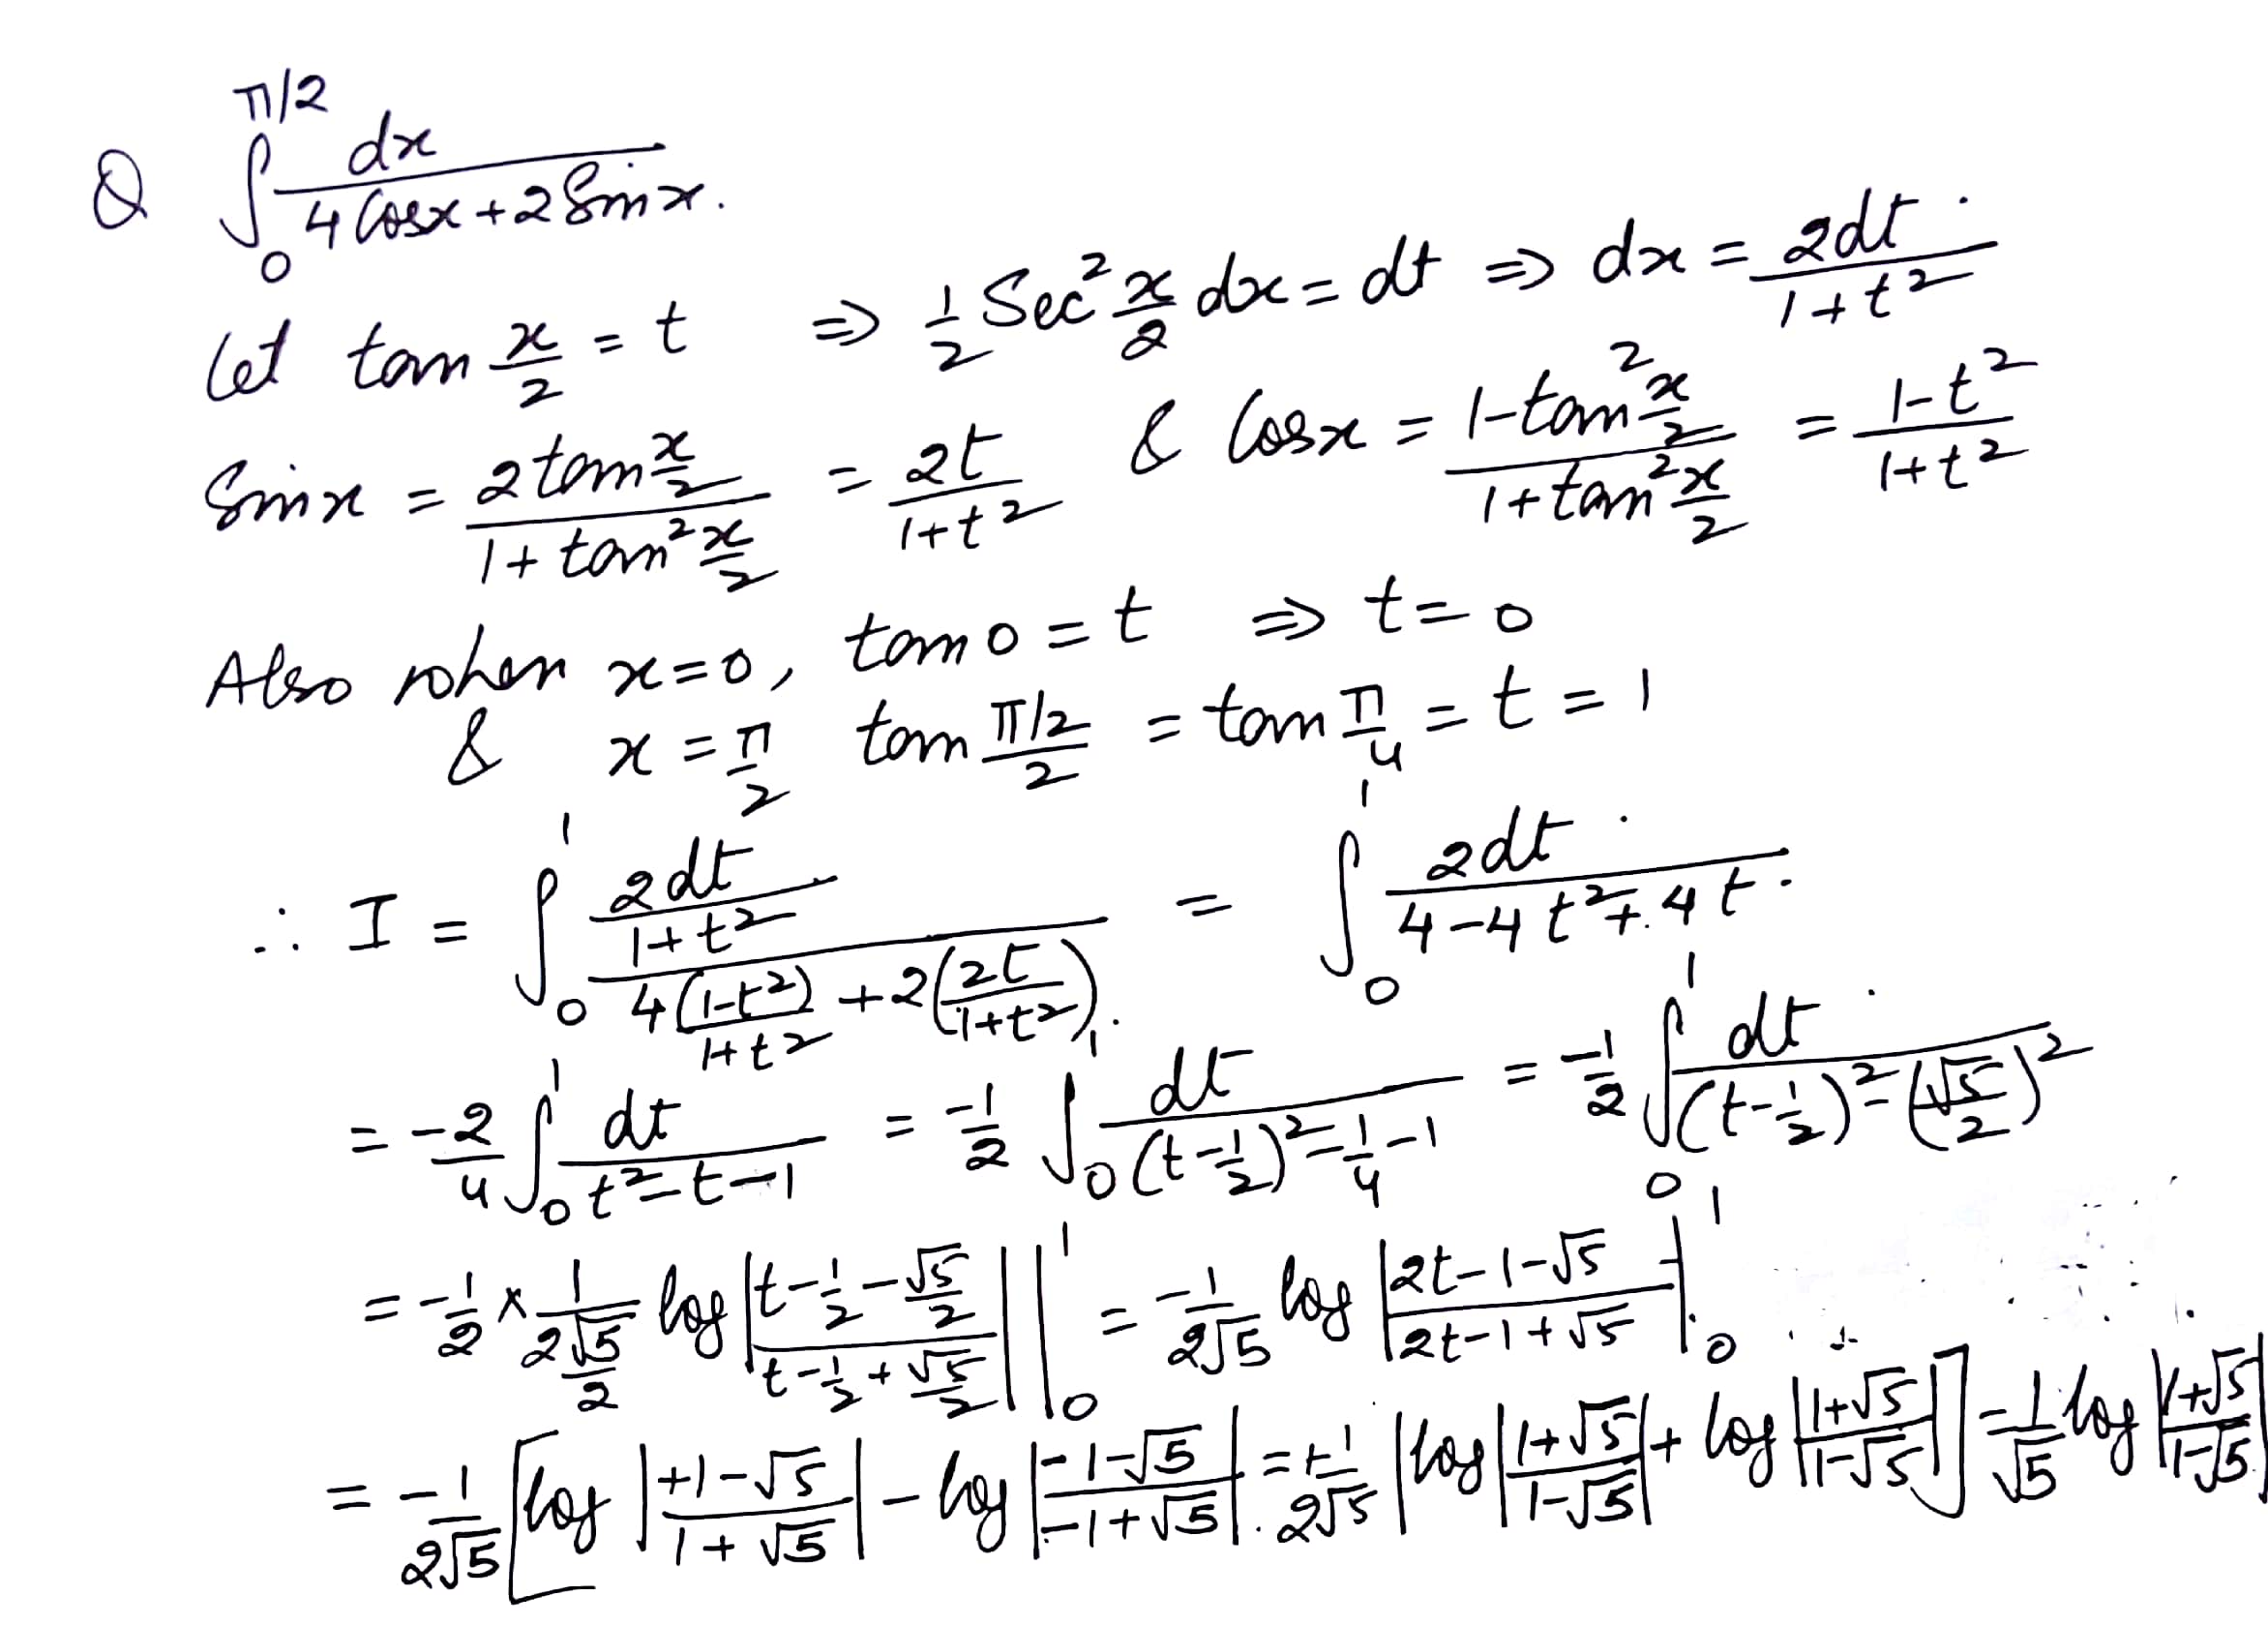 Q ∫₀^{π/2} dx / (4 Cosx + 2 Sin x).
Let tan x/2 = t ⇒ 1/2 Sec² x/2 dx = dt ⇒ dx = 2dt / (1+t²)
Sin x = 2 tan x/2 / (1 + tan² x/2) = 2t / (1+t²) & Cos x = (1 - tan² x/2) / (1 + tan² x/2) = (1-t²) / (1+t²)
Also when x=0, tan 0 = t ⇒ t = 0
& x = π/2 tan (π/2)/2 = tan π/4 = t = 1
∴ I = ∫₀¹ (2dt / (1+t²)) / (4((1-t²)/(1+t²)) + 2(2t/(1+t²))) = ∫₀¹ 2dt / (4 - 4t² + 4t)
= -2/4 ∫₀¹ dt / (t² - t - 1) = -1/2 ∫₀¹ dt / ((t - 1/2)² - 1/4 - 1) = -1/2 ∫₀¹ dt / ((t - 1/2)² - (√5/2)²)
= -1/2 × 1/(2 √5/2) log |(t - 1/2 - √5/2) / (t - 1/2 + √5/2)| |₀¹ = -1/(2√5) log |(2t - 1 - √5) / (2t - 1 + √5)|₀¹
= -1/(2√5) [log |(+1 - √5) / (1 + √5)| - log |(-1 - √5) / (-1 + √5)| = + 1/(2√5) [log |(1 + √5) / (1 - √5)| + log |(1 + √5) / (1 - √5)|] = 1/√5 log |(1 + √5) / (1 - √5)|